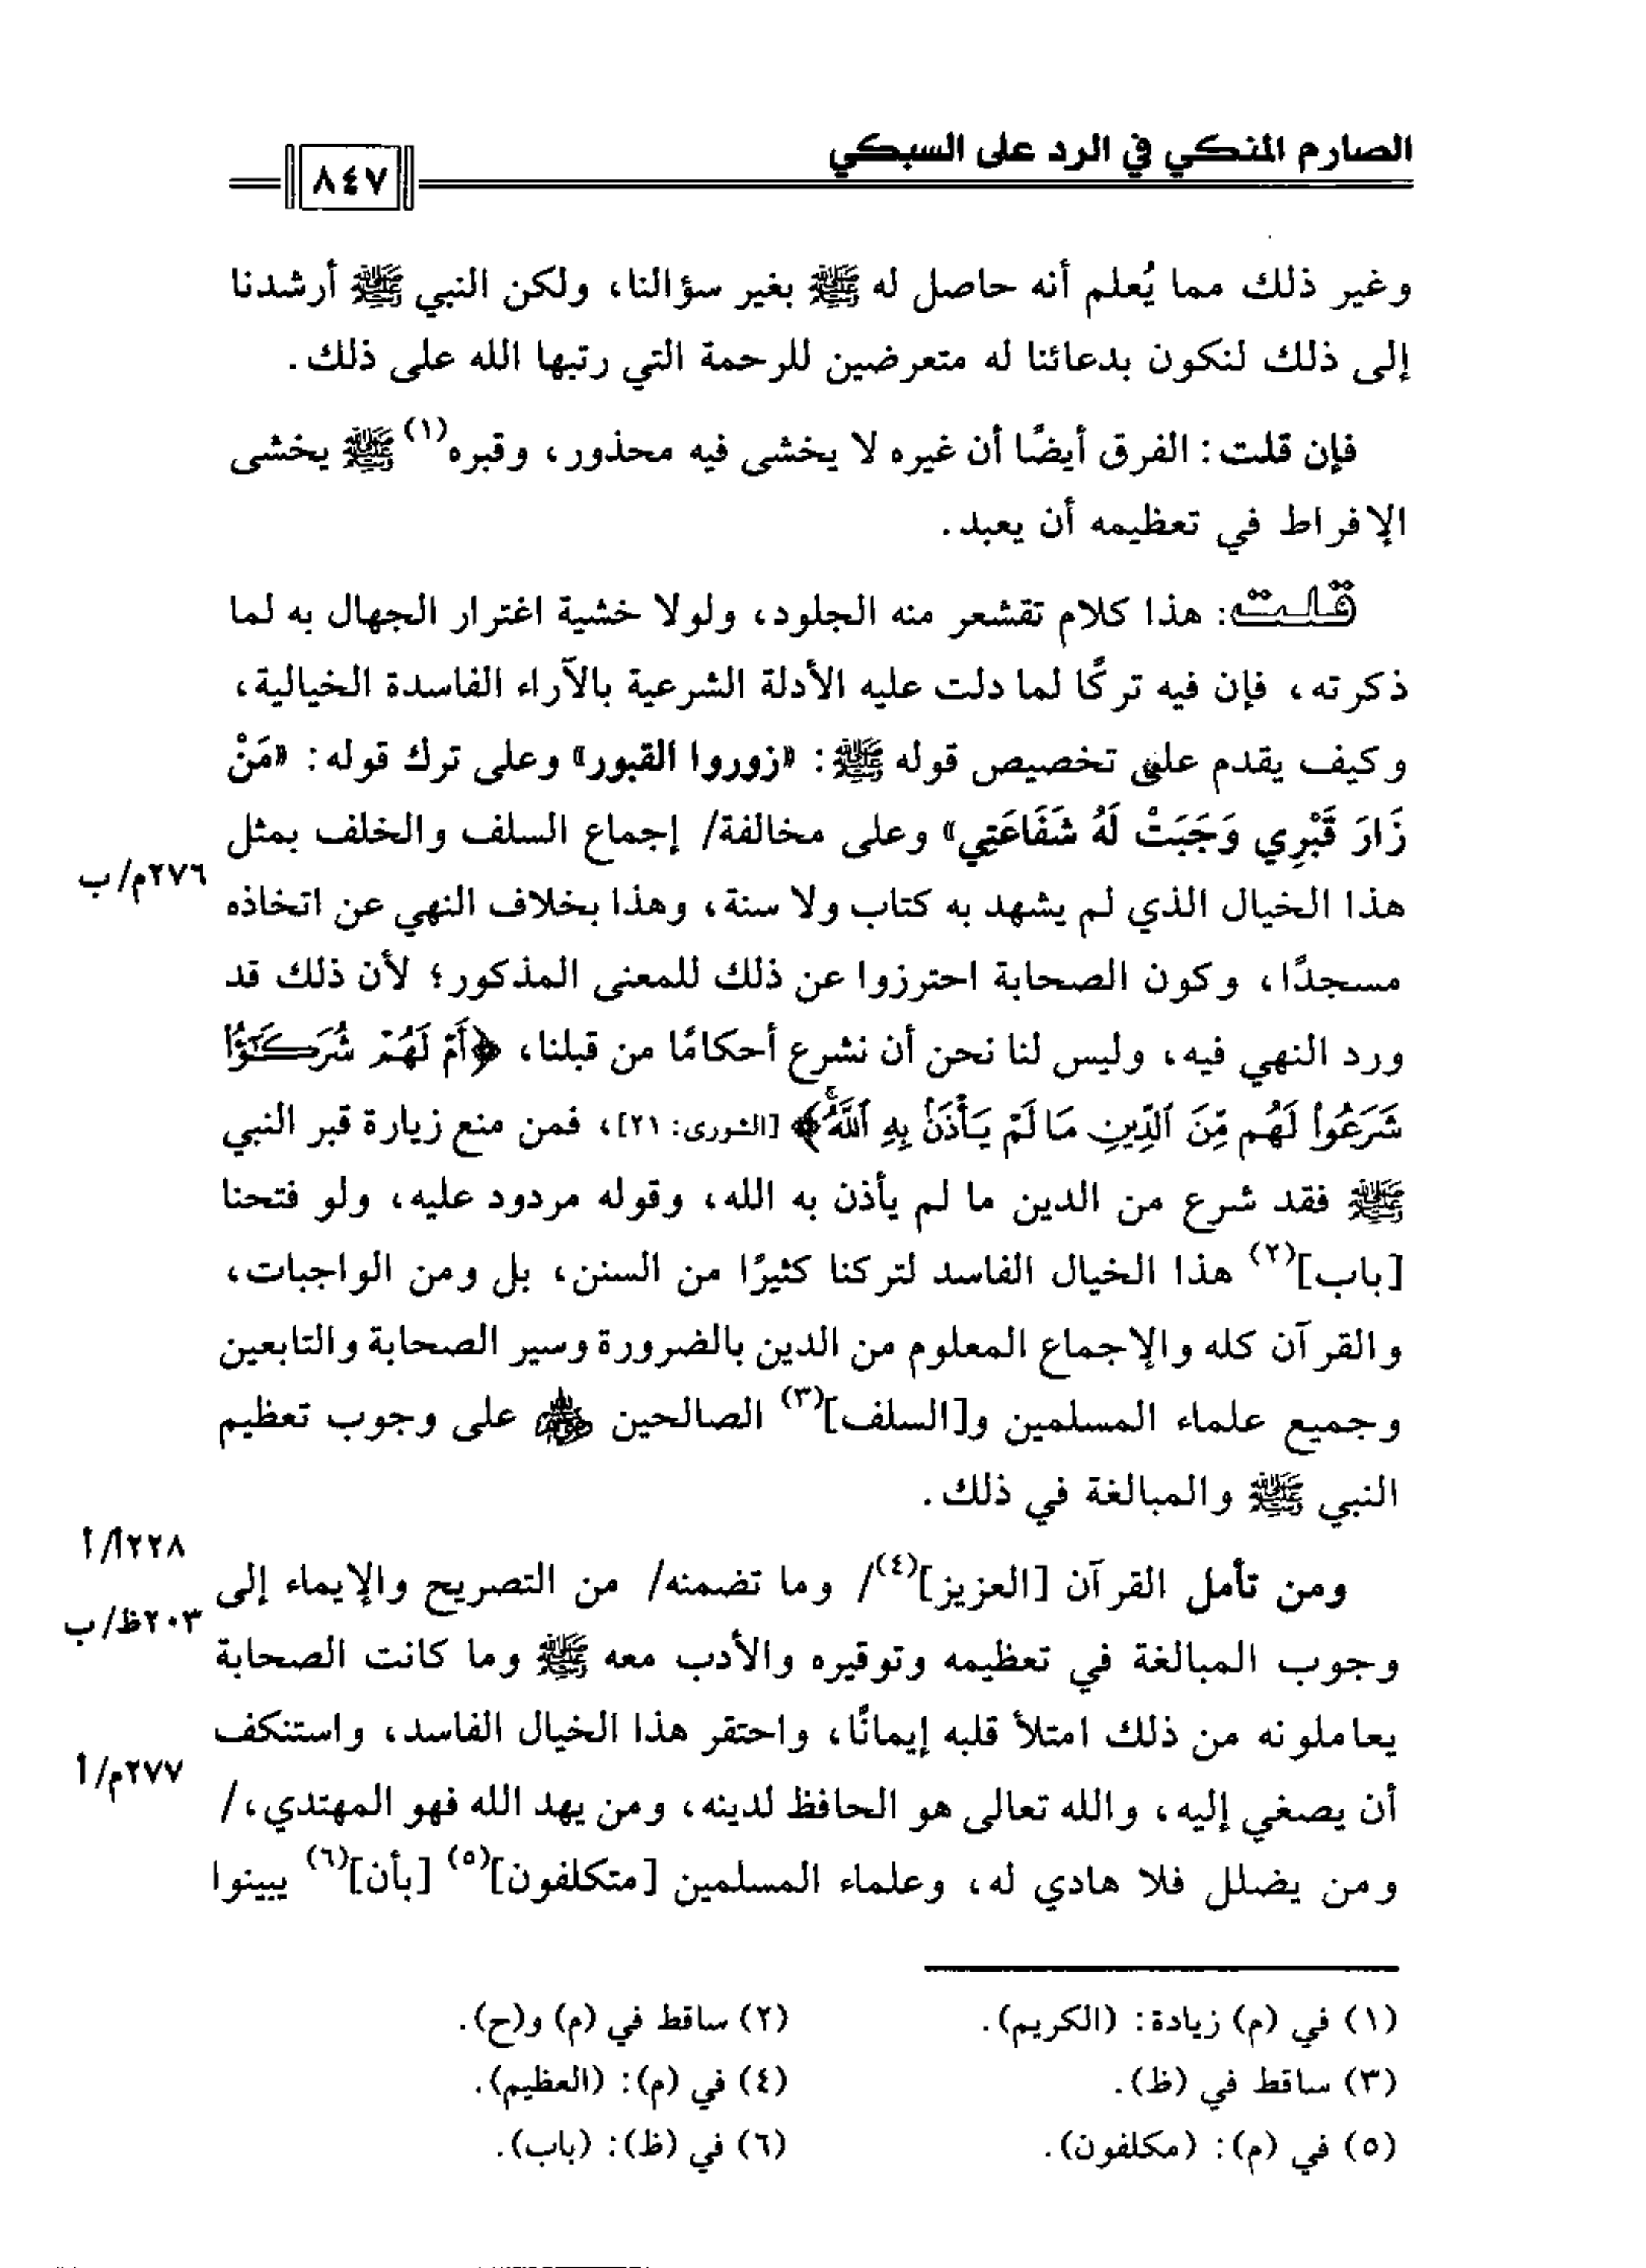 الصارم المنكي في الرد على السبكي
٨٤٧
وغير ذلك مما يُعلم أنه حاصل له ﷺ بغير سؤالنا، ولكن النبي ﷺ أرشدنا
إلى ذلك لنكون بدعائنا له متعرضين للرحمة التي رتبها الله على ذلك.
فإن قلت: الفرق أيضًا أن غيره لا يخشى فيه محذور، وقبره(١) ﷺ يخشى
الإفراط في تعظيمه أن يعبد.
قلت: هذا كلام تقشعر منه الجلود، ولولا خشية اغترار الجهال به لما
ذكرته، فإن فيه تركًا لما دلت عليه الأدلة الشرعية بالآراء الفاسدة الخيالية،
وكيف يقدم على تخصيص قوله ﷺ: «زوروا القبور» وعلى ترك قوله: «مَنْ
زَارَ قَبْرِي وَجَبَتْ لَهُ شَفَاعَتِي» وعلى مخالفة/ إجماع السلف والخلف بمثل
٢٧٦م/ب
هذا الخيال الذي لم يشهد به كتاب ولا سنة، وهذا بخلاف النهي عن اتخاذه
مسجدًا، وكون الصحابة احترزوا عن ذلك للمعنى المذكور؛ لأن ذلك قد
ورد النهي فيه، وليس لنا نحن أن نشرع أحكامًا من قبلنا، ﴿أَمْ لَهُمْ شُرَكَٰٓؤُا۟
شَرَعُوا۟ لَهُم مِّنَ ٱلدِّينِ مَا لَمْ يَأْذَنۢ بِهِ ٱللَّهُ﴾ [الشورى: ٢١]، فمن منع زيارة قبر النبي
ﷺ فقد شرع من الدين ما لم يأذن به الله، وقوله مردود عليه، ولو فتحنا
[باب](٢) هذا الخيال الفاسد لتركنا كثيرًا من السنن، بل ومن الواجبات،
والقرآن كله والإجماع المعلوم من الدين بالضرورة وسير الصحابة والتابعين
وجميع علماء المسلمين و[السلف](٣) الصالحين ﵃ على وجوب تعظيم
النبي ﷺ والمبالغة في ذلك.
٢٢٨أ/أ
ومن تأمل القرآن [العزيز](٤)/ وما تضمنه/ من التصريح والإيماء إلى
٢٠٣ظ/ب
وجوب المبالغة في تعظيمه وتوقيره والأدب معه ﷺ وما كانت الصحابة
يعاملونه من ذلك امتلأ قلبه إيمانًا، واحتقر هذا الخيال الفاسد، واستنكف
٢٧٧م/أ
أن يصغي إليه، والله تعالى هو الحافظ لدينه، ومن يهد الله فهو المهتدي،/
ومن يضلل فلا هادي له، وعلماء المسلمين [متكلفون](٥) [بأن](٦) يبينوا
(١) في (م) زيادة: (الكريم).
(٢) ساقط في (م) و(ح).
(٣) ساقط في (ظ).
(٤) في (م): (العظيم).
(٥) في (م): (مكلفون).
(٦) في (ظ): (باب).